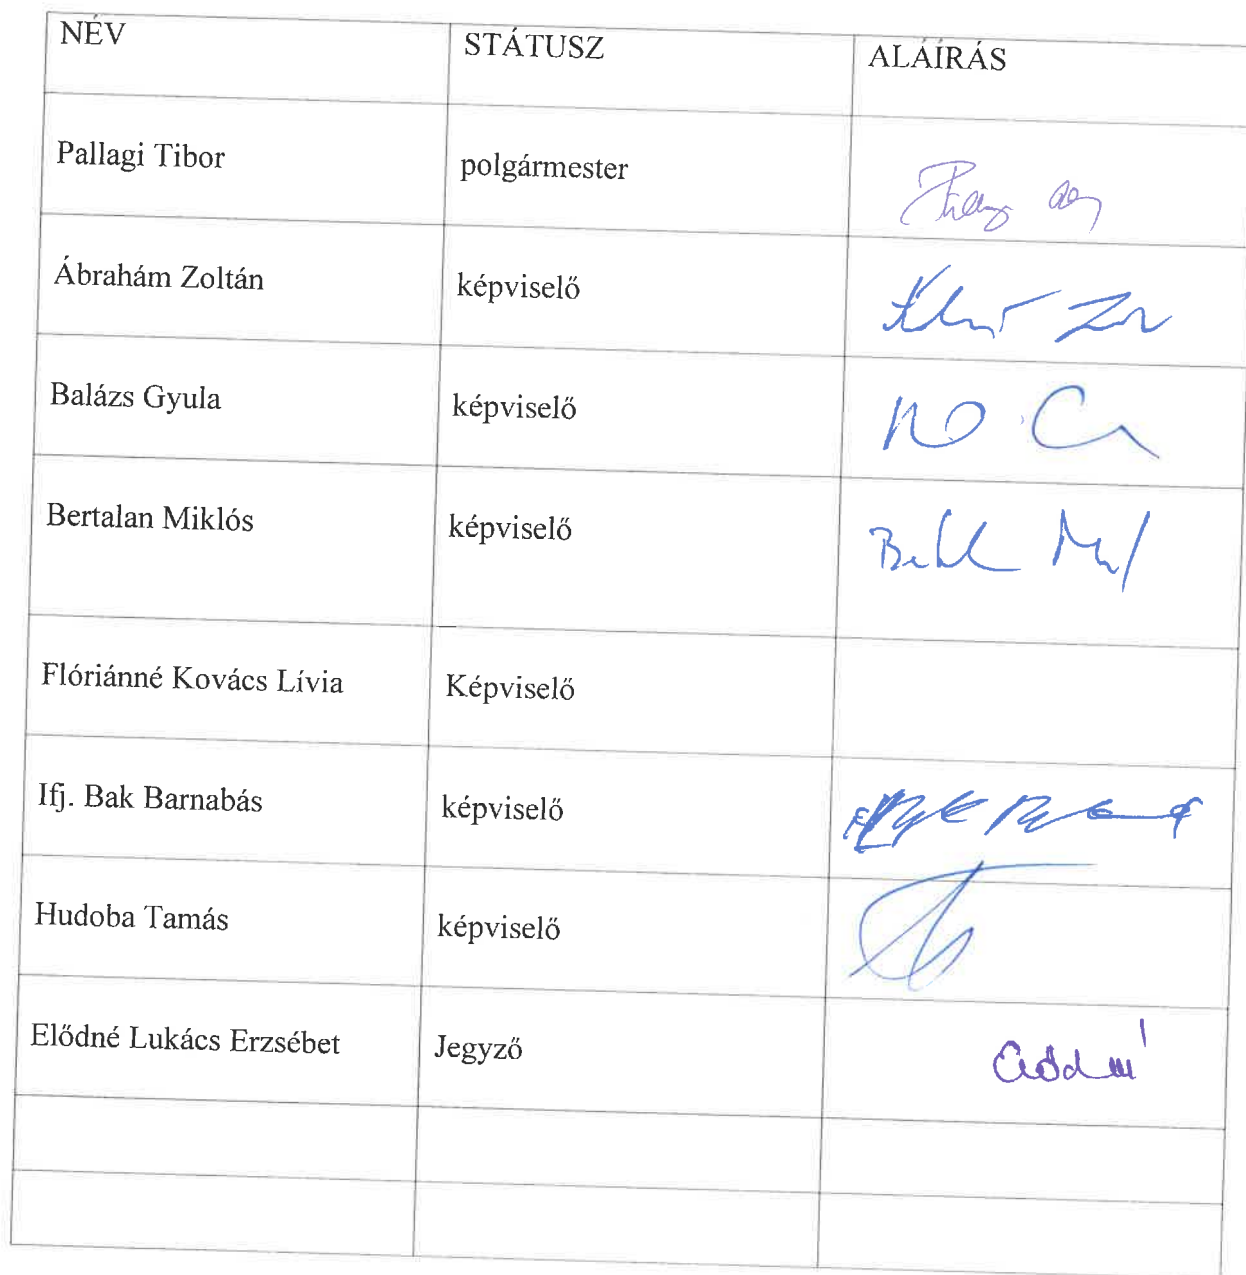 NÉV STÁTUSZ ALÁÍRÁS
Pallagi Tibor polgármester
Ábrahám Zoltán képviselő
Balázs Gyula képviselő
Bertalan Miklós képviselő
Flóriánné Kovács Lívia Képviselő
Ifj. Bak Barnabás képviselő
Hudoba Tamás képviselő
Elődné Lukács Erzsébet Jegyző